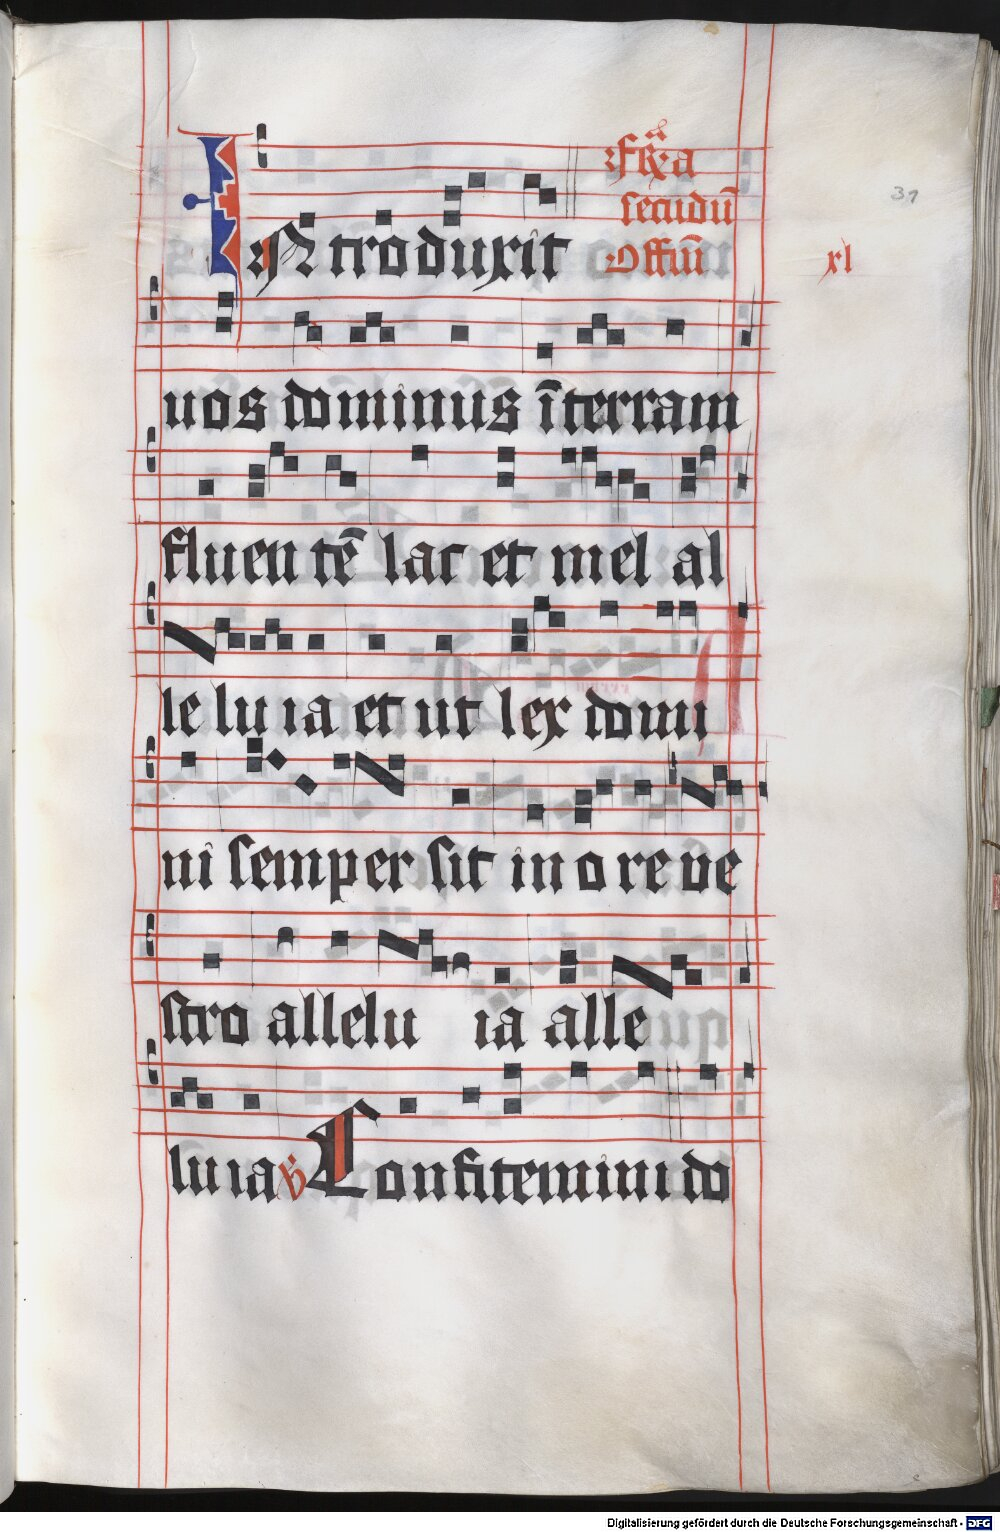 fr̄ ẍ a
secūdū
INtroduxit offiū xl
31
uos dominus ī terram
fluen tē lac et mel al
le lu ia et ut lex domi
ni semper sit in o re ve
stro allelu ia alle
lu ia ℣ Confitemini do
e
Digitalisierung gefördert durch die Deutsche Forschungsgemeinschaft - DFG